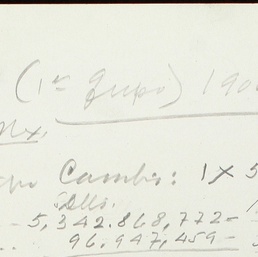 (1er grupo) 190
ex.
po Cambio: 1 X 5
Dlls.
- 5,342.868,772-
.. 96,947,459-